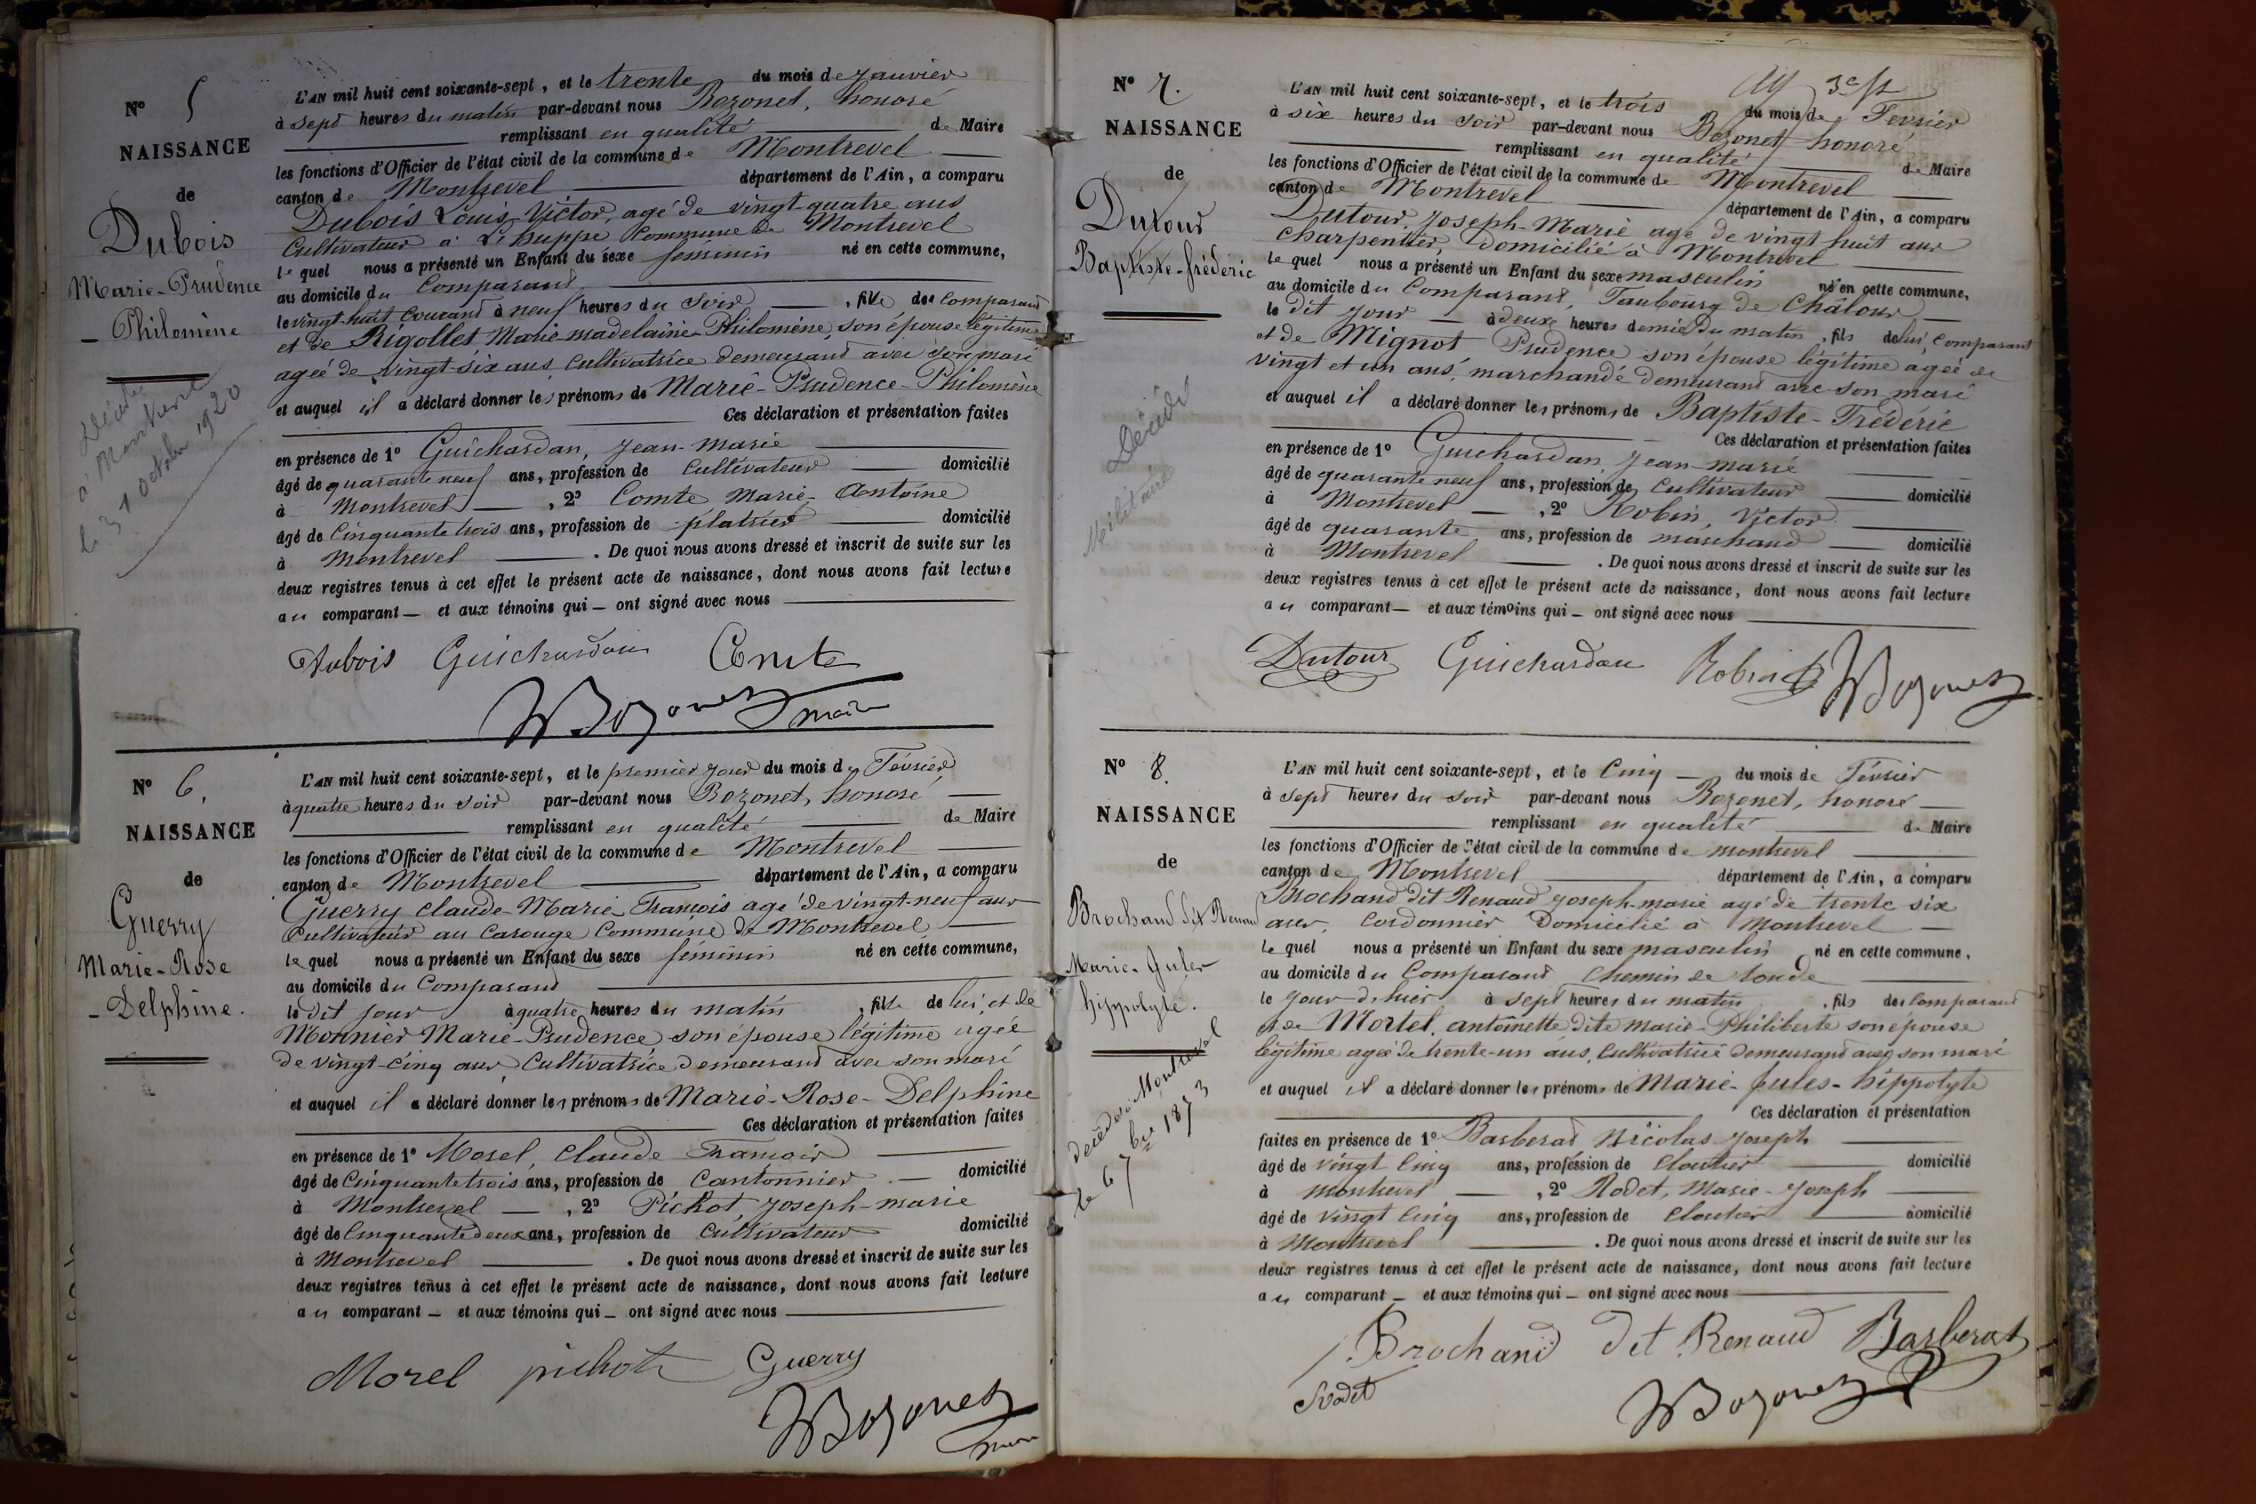 N° 5
NAISSANCE
de
Dubois
Marie-Prudence
- Philomène
Décédée
à Montrevel
le 31 octobre 1920
L'AN mil huit cent soixante-sept, et le trente du mois de Janvier
à Sept heures du matin par-devant nous Bozonet, honoré
remplissant en qualité de Maire
les fonctions d'Officier de l'état civil de la commune de Montrevel
canton de Montrevel département de l'Ain, a comparu
Dubois Louis Victor, agé de vingt quatre ans
Cultivateur à huppe Commune de Montrevel
le quel nous a présenté un Enfant du sexe féminin né en cette commune,
au domicile du Comparant
le vingt-huit Courant à neuf heures du Soir, fille des comparant
et de Rigollet Marie madelaine Philomène, son épouse légitime
agéé de vingt-six ans Cultivatrice demeurant avec son mari
et auquel il a déclaré donner les prénoms de Marie-Prudence-Philomène
Ces déclaration et présentation faites
en présence de 1° Guichardan, Jean-Marie
âgé de quarante neuf ans, profession de Cultivateur domicilié
à Montrevel, 2° Comte Marie-Antoine
âgé de Cinquante trois ans, profession de platrier domicilié
à Montrevel. De quoi nous avons dressé et inscrit de suite sur les
deux registres tenus à cet effet le présent acte de naissance, dont nous avons fait lecture
au comparant — et aux témoins qui — ont signé avec nous
Dubois Guichardan Comte
Bozonet
maire
N° 6.
NAISSANCE
de
Guerry
Marie-Rose
- Delphine.
L'AN mil huit cent soixante-sept, et le premier jour du mois de Février
à quatre heures du Soir par-devant nous Bozonet, honoré
remplissant en qualité de Maire
les fonctions d'Officier de l'état civil de la commune de Montrevel
canton de Montrevel département de l'Ain, a comparu
Guerry Claude-Marie-François agé de vingt-neuf ans
Cultivateur au Carouge Commune de Montrevel
le quel nous a présenté un Enfant du sexe féminin né en cette commune,
au domicile du Comparant
le dit jour à quatre heures du matin, fille de lui, et de
Monnier Marie-Prudence, son épouse légitime agéé
de vingt-cinq ans Cultivatrice demeurant avec son mari
et auquel il a déclaré donner les prénoms de Marie-Rose-Delphine
Ces déclaration et présentation faites
en présence de 1° Morel, Claude François
âgé de Cinquante trois ans, profession de Cantonnier domicilié
à Montrevel —, 2° Pichot, Joseph-marie
âgé de Cinquante deux ans, profession de Cultivateur domicilié
à Montrevel. De quoi nous avons dressé et inscrit de suite sur les
deux registres tenus à cet effet le présent acte de naissance, dont nous avons fait lecture
au comparant — et aux témoins qui — ont signé avec nous
Morel pichot Guerry
Bozonet
maire
N° 7.
NAISSANCE
de
Dutour
Baptiste-fréderic
Décédé
Militaire
L'AN mil huit cent soixante-sept, et le trois du mois de Fevrier
à six heures du Soir par-devant nous Bozonet honoré
remplissant en qualité de Maire
les fonctions d'Officier de l'état civil de la commune de Montrevel
canton de Montrevel département de l'Ain, a comparu
Dutour, Joseph-Marie agé de vingt huit ans
Charpentier, domicilié à Montrevel
le quel nous a présenté un Enfant du sexe masculin né en cette commune,
au domicile du Comparant, Faubourg de Châlour
le dit jour à deux heures demie du matin, fils de lui, Comparant
et de Mignot Prudence son épouse légitime agéé de
vingt et un ans, marchande demeurant avec son mari
et auquel il a déclaré donner les prénoms de Baptiste-Frédéric
Ces déclaration et présentation faites
en présence de 1° Guichardan Jean-marie
âgé de quarante neuf ans, profession de Cultivateur domicilié
à Montrevel —, 2° Robin, Victor
âgé de quarante ans, profession de marchand domicilié
à Montrevel. De quoi nous avons dressé et inscrit de suite sur les
deux registres tenus à cet effet le présent acte de naissance, dont nous avons fait lecture
au comparant — et aux témoins qui — ont signé avec nous
Dutour Guichardan Robin Bozonet
N° 8.
NAISSANCE
de
Brochand dit Renaud
Marie-Jules
hippolyte.
décédé à Montrevel
le 6 7bre 1873
L'AN mil huit cent soixante-sept, et le Cinq du mois de Février
à Sept heures du Soir par-devant nous Bozonet, honoré
remplissant en qualité de Maire
les fonctions d'Officier de l'état civil de la commune de montrevel
canton de Montrevel département de l'Ain, a comparu
Brochand dit Renaud Joseph-marie agé de trente six
ans, Cordonnier Domicilié à Montrevel
le quel nous a présenté un Enfant du sexe masculin né en cette commune,
au domicile du Comparant Chemin de ronde
le jour d'hier à Sept heures du matin, fils des Comparant
et de Mortel, antoinette dite marie-Philiberte son épouse
légitime agéé de trente-un ans, Cultivatrice demeurant avec son mari
et auquel il a déclaré donner les prénoms de Marie-Jules-hippolyte
Ces déclaration et présentation
faites en présence de 1° Barberat Nicolas Joseph
âgé de vingt Cinq ans, profession de Cloutier domicilié
à montrevel —, 2° Rodet, Marie-Joseph
âgé de vingt Cinq ans, profession de Cloutier domicilié
à Montrevel. De quoi nous avons dressé et inscrit de suite sur les
deux registres tenus à cet effet le présent acte de naissance, dont nous avons fait lecture
au comparant — et aux témoins qui — ont signé avec nous
Brochand dit Renaud Barberat
Rodet Bozonet